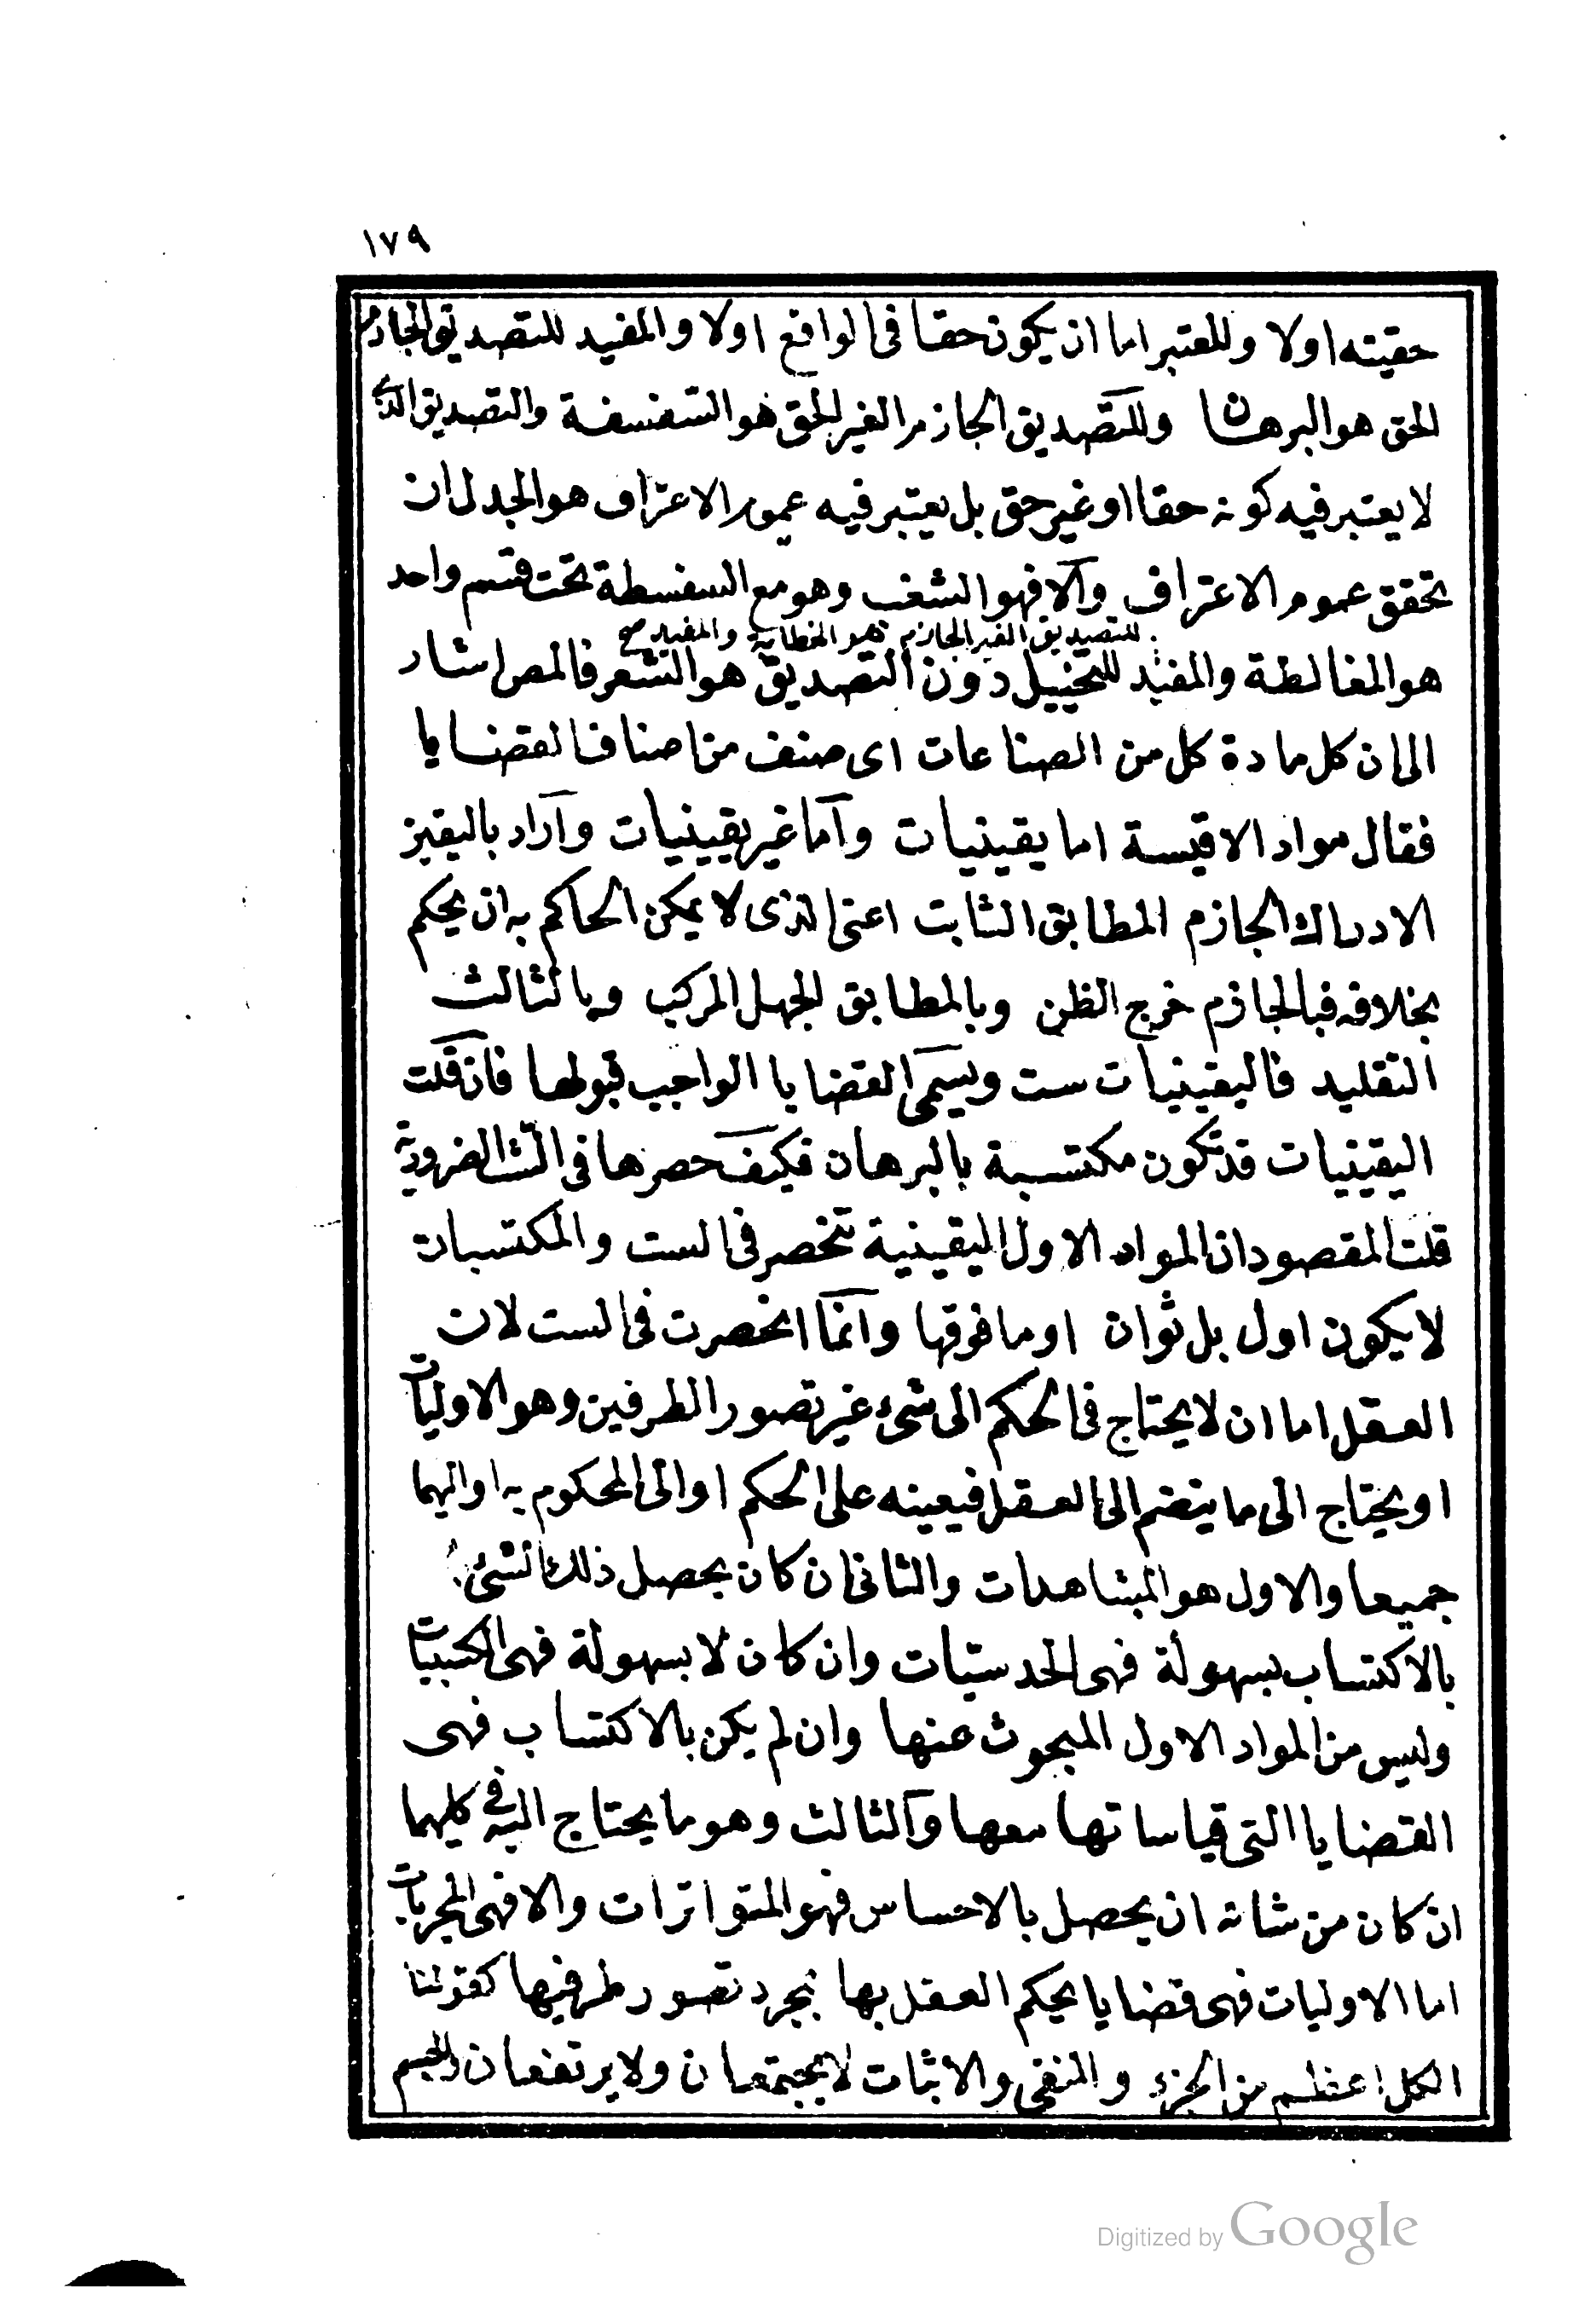 ١٧٩
حقيته اولا وللمعتبر اما ان يكون حقا فى الواقع اولا والمفيد للتصديق الجازم
الحق هو البرهان وللتصديق الجازم الغير الحق هو السفسفة والتصديق الذى
لا يعتبر فيه كونه حقا او غير حق بل يعتبر فيه عموم الاعتراف هو الجدل ان
تحقق عموم الاعتراف والا فهو الشغب وهو مع السفسطة تحت قسم واحد
للتصديق الغير الجازم هو الخطابة والمفيد صح
هو المغالطة والمفيد للتخييل دون التصديق هو الشعر فالمص اشار
الى ان كل مادة كل من الصناعات اى صنف من اصناف القضايا
فقال مواد الاقيسة اما يقينيات واما غير يقينيات واراد باليقين
الادراك الجازم المطابق الثابت اعنى الذى لا يمكن الحاكم به ان يحكم
بخلافه فبالجازم خرج الظن وبالمطابق الجهل المركب وبالثالث
التقليد فاليقينيات ست ويسمى القضايا الواجب قبولها فان قلت
اليقينيات قد تكون مكتسبة بالبرهان فكيف حصرها فى الست الضرورية
قلت المقصود ان المواد الاول اليقينية تنحصر فى الست والمكتسبات
لا يكون اول بل ثوان او ما فوقها وانما انحصرت فى الست لان
العقل اما ان لا يحتاج فى الحكم الى شئ غير تصور الطرفين وهو الاوليات
او يحتاج الى ما ينضم الى العقل فيعينه على الحكم او الى المحكوم به او اليهما
جميعا والاول هو المشاهدات والثانى ان كان يحصل ذلك الشئ
بالاكتساب بسهولة فهى الحدسيات وان كان لا بسهولة فهى الكسبيات
وليس من المواد الاول المبحوث عنها وان لم يكن بالاكتساب فهى
القضايا التى قياساتها معها والثالث وهو ما يحتاج اليه فى كليهما
ان كان من شانه ان يحصل بالاحساس فهو المتواترات والا فهى المجربات
اما الاوليات فهى قضايا يحكم العقل بها بمجرد تصور طرفيها كقولنا
الكل اعظم من الجزء والنفى والاثبات لا يجتمعان ولا يرتفعان والجسم
Digitized by Google